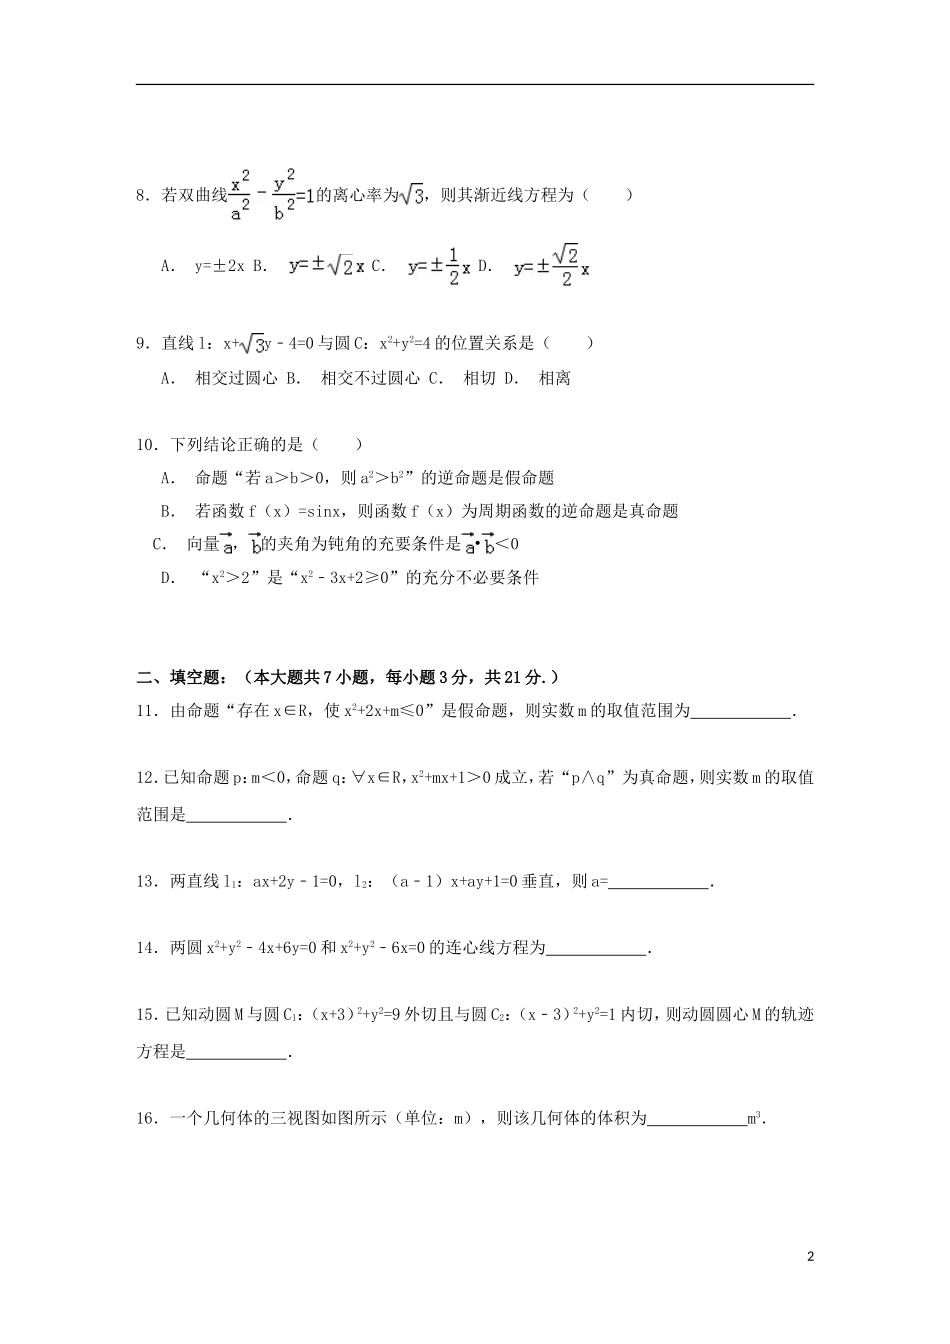 8．若双曲线x²/a²﹣y²/b²=1的离心率为√3，则其渐近线方程为（　　）
A． y=±2x B． y=±√2x C． y=±1/2x D． y=±√2/2x
9．直线 l：x+√3y﹣4=0 与圆 C：x²+y²=4 的位置关系是（　　）
A． 相交过圆心 B． 相交不过圆心 C． 相切 D． 相离
10．下列结论正确的是（　　）
A． 命题“若 a＞b＞0，则 a²＞b²”的逆命题是假命题
B． 若函数 f（x）=sinx，则函数 f（x）为周期函数的逆命题是真命题
C． 向量a⃗，b⃗的夹角为钝角的充要条件是a⃗•b⃗＜0
D． “x²＞2”是“x²﹣3x+2≥0”的充分不必要条件
二、填空题：（本大题共 7 小题，每小题 3 分，共 21 分.）
11．由命题“存在 x∈R，使 x²+2x+m≤0”是假命题，则实数 m 的取值范围为____________．
12．已知命题 p：m＜0，命题 q：∀x∈R，x²+mx+1＞0 成立，若“p∧q”为真命题，则实数 m 的取值
范围是____________．
13．两直线 l₁：ax+2y﹣1=0，l₂：（a﹣1）x+ay+1=0 垂直，则 a=____________．
14．两圆 x²+y²﹣4x+6y=0 和 x²+y²﹣6x=0 的连心线方程为____________．
15．已知动圆 M 与圆 C₁：（x+3）²+y²=9 外切且与圆 C₂：（x﹣3）²+y²=1 内切，则动圆圆心 M 的轨迹
方程是____________．
16．一个几何体的三视图如图所示（单位：m），则该几何体的体积为____________m³．
2